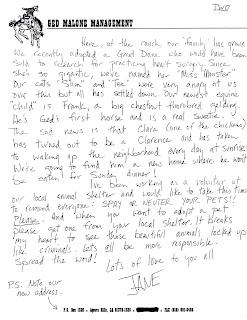 Dec
GED MALONE MANAGEMENT
Here, at the ranch, our "family" has grown
We recently adopted a Great Dane who would have been
sold to research for practicing heart surgery. Since
she's so gigantic, we've named her "Miss Monster"
Our cats "Slim" and "Tee" were very angry at us
over this but all has settled down. Our newest equine
"child" is Frank, a big chestnut thorobred gelding
He's Ged's first horse and is a real sweetie.
The sad news is that Clara (one of the chickens)
has turned out to be a Clarence and has taken
to waking up the neighborhood every day at sunrise.
We're going to find him a new home where he won't
be eaten for Sunday dinner!
I've been working as a volunteer at
our local animal shelter and would like to take this time
to remind everyone: SPAY OR NEUTER YOUR PETS!!
Please. And when you want to adopt a pet
please get one from your local shelter. It breaks
my heart to see those beautiful animals locked up
like criminals. Lets all be more responsible.
Spread the word!
Lots of love to you all
JANE
P.S. Note our
new address
P.O. Box Agoura Hills, CA